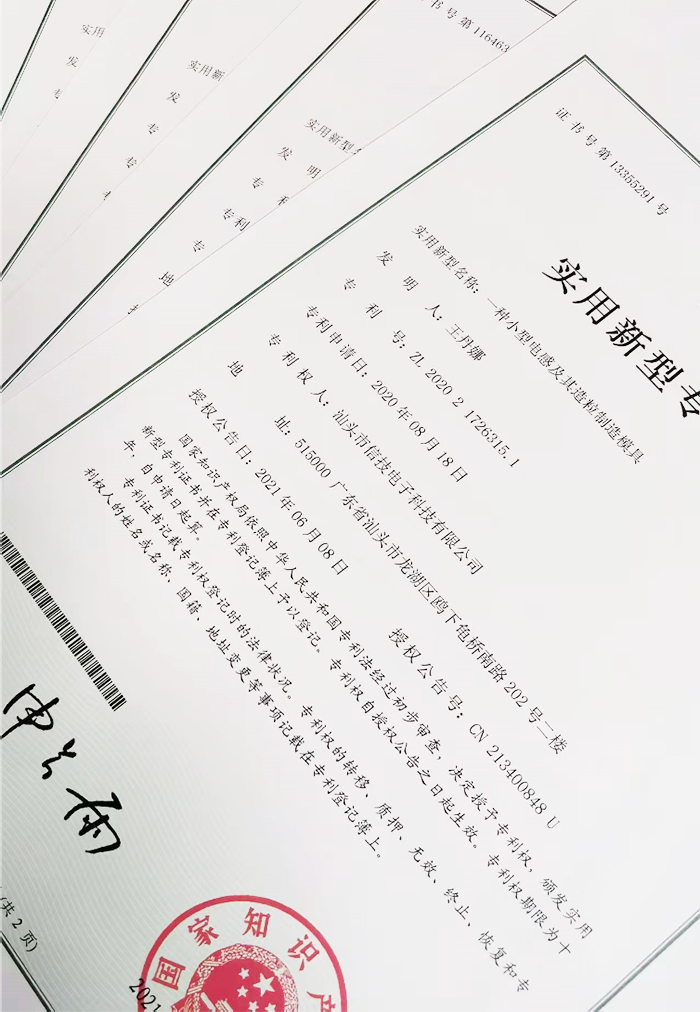 实用新
发
实用新
发
专
专
证书号第116463
实用新型
发明
专
专利
专
地
证书号第13355291号
实用新型专
实用新型名称:一种小型电感及其造粒制造模具
发明人:王丹娜
专利号:ZL 2020 2 1726315.1
专利申请日:2020年08月18日
专利权人:汕头市信技电子科技有限公司
地址:515000 广东省汕头市龙湖区鸥下龟桥南路202号二楼
授权公告日:2021年06月08日 授权公告号:CN 213400848 U
国家知识产权局依照中华人民共和国专利法经过初步审查,决定授予专利权,颁发实用
新型专利证书并在专利登记簿上予以登记。专利权自授权公告之日起生效。专利权期限为十
年,自申请日起算。
专利证书记载专利权登记时的法律状况。专利权的转移、质押、无效、终止、恢复和专
利权人的姓名或名称、国籍、地址变更等事项记载在专利登记簿上。
申长雨
国家知识产
2021
(共2页)